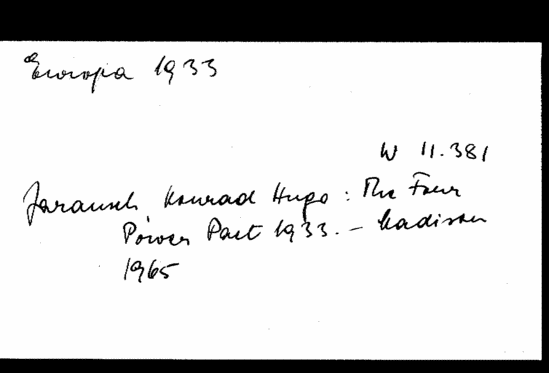 Europa 1933
W 11.381
Jarausch Konrad Hugo: The Four
Power Pact 1933. – Madison
1965